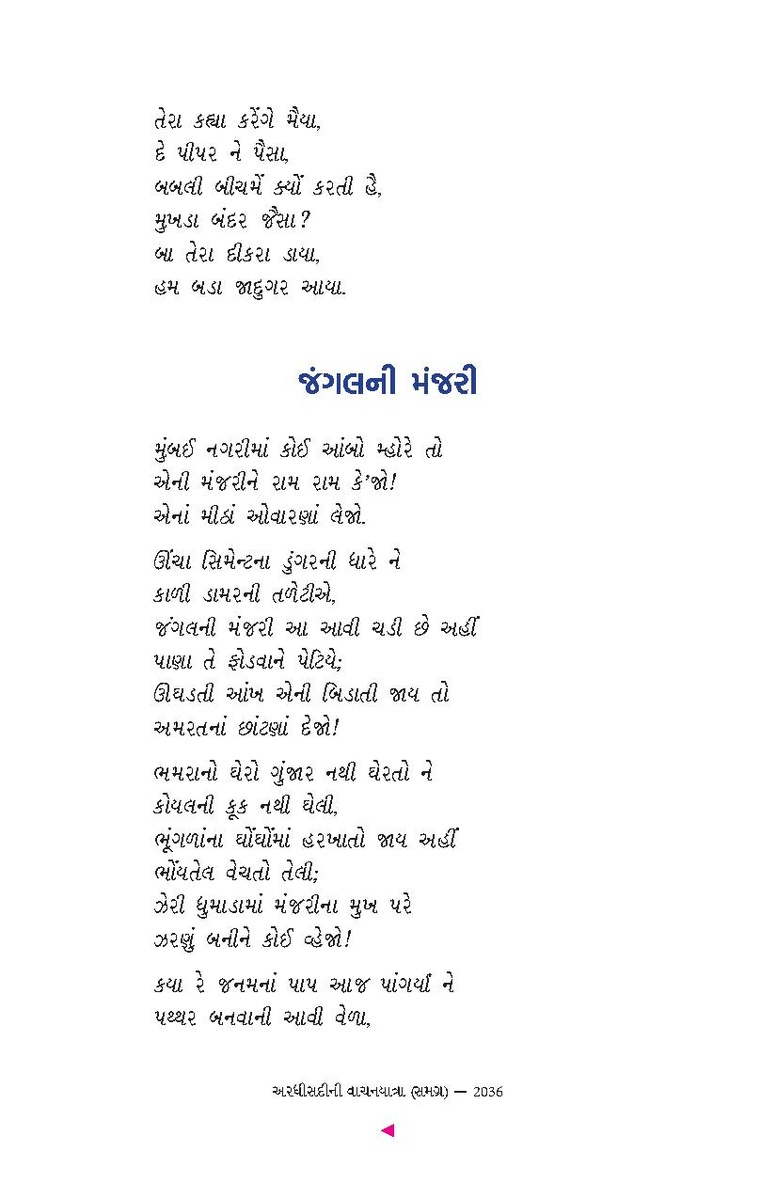 તેરા કહ્યા કરેંગે મૈયા,
દે પીપર ને પૈસા,
બબલી બીચમેં ક્યોં કરતી હૈ,
મુખડા બંદર જૈસા?
બા તેરા દીકરા ડાયા,
હમ બડા જાદુગર આયા.
જંગલની મંજરી
મુંબઈ નગરીમાં કોઈ આંબો મ્હોરે તો
એની મંજરીને રામ રામ કે'જો!
એનાં મીઠાં ઓવારણાં લેજો.
ઊંચા સિમેન્ટના ડુંગરની ધારે ને
કાળી ડામરની તળેટીએ,
જંગલની મંજરી આ આવી ચડી છે અહીં
પાણા તે ફોડવાને પેટિયે;
ઊઘડતી આંખ એની બિડાતી જાય તો
અમરતનાં છાંટણાં દેજો!
ભમરાનો ઘેરો ગુંજાર નથી ઘેરતો ને
કોયલની કૂક નથી ઘેલી,
ભૂંગળાંના ઘોંઘોંમાં હરખાતો જાય અહીં
ભોંયતેલ વેચતો તેલી;
ઝેરી ધુમાડામાં મંજરીના મુખ પરે
ઝરણું બનીને કોઈ વ્હેજો!
કયા રે જનમનાં પાપ આજ પાંગર્યાં ને
પથ્થર બનવાની આવી વેળા,
અરધીસદીની વાચનયાત્રા (સમગ્ર) — 2036